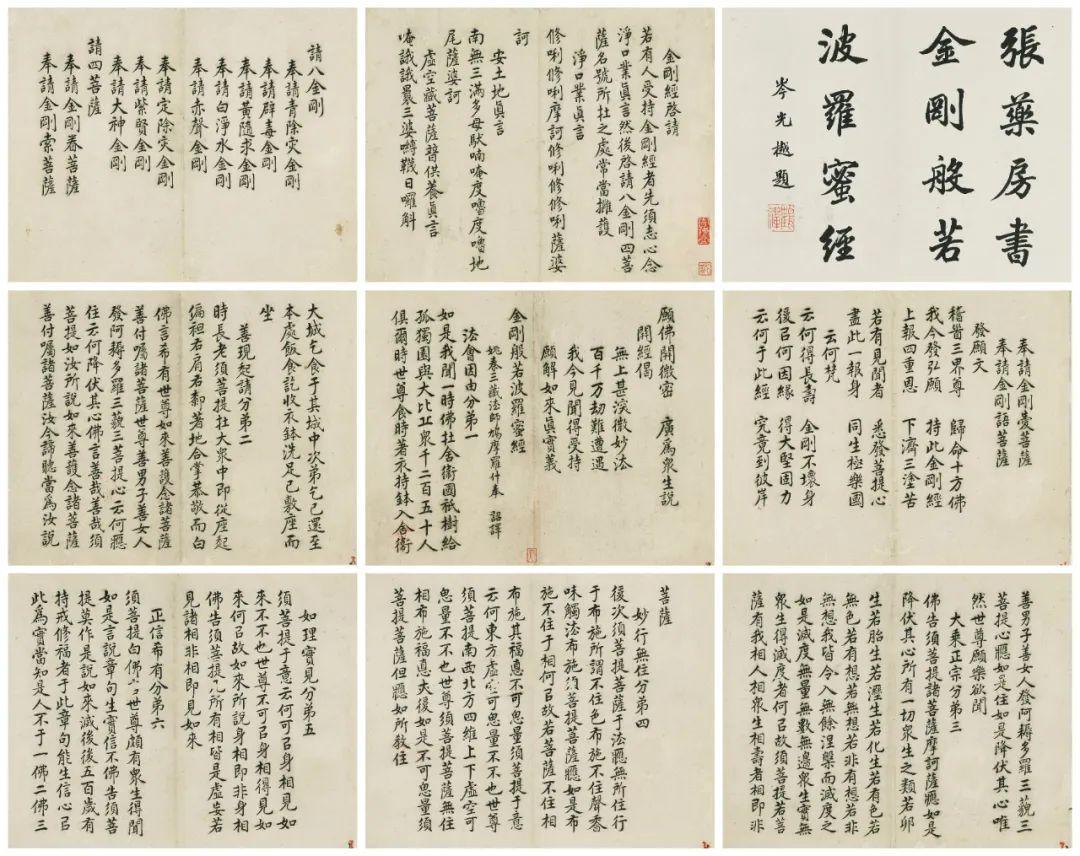 張藥房書
金剛般若
波羅蜜經
岑光樾題
金剛經啓請
若有人受持金剛經者先須志心念
淨口業眞言然後啓請八金剛四菩
薩名號所在之處常當擁護
淨口業眞言
修唎修唎摩訶修唎修修唎薩婆
訶
安土地眞言
南無三滿多母馱喃唵度嚕度嚕地
尾薩婆訶
虛空藏菩薩普供養眞言
唵誐誐曩三婆嚩韈日囉斛
請八金剛
奉請青除災金剛
奉請辟毒金剛
奉請黃隨求金剛
奉請白淨水金剛
奉請赤聲金剛
奉請定除災金剛
奉請紫賢金剛
奉請大神金剛
請四菩薩
奉請金剛眷菩薩
奉請金剛索菩薩
奉請金剛愛菩薩
奉請金剛語菩薩
發願文
稽首三界尊 歸命十方佛
我今發弘願 持此金剛經
上報四重恩 下濟三塗苦
若有見聞者 悉發菩提心
盡此一報身 同生極樂國
云何梵
云何得長壽 金剛不壞身
後㠯何因緣 得大堅固力
云何于此經 究竟到彼岸
願佛開微密 廣爲衆生說
開經偈
無上甚深微妙法
百千万劫難遭遇
我今見聞得受持
願解如來眞實義
金剛般若波羅蜜經
姚秦三藏法師鳩摩羅什奉 詔譯
法會因由分第一
如是我聞一時佛在舍衛國祇樹給
孤獨園與大比丘衆千二百五十人
俱爾時世尊食時著衣持鉢入舍衛
大城乞食于其城中次第乞已還至
本處飯食訖收衣鉢洗足已敷座而
坐
善現起請分第二
時長老須菩提在大衆中即從座起
偏袒右肩右膝著地合掌恭敬而白
佛言希有世尊如來善護念諸菩薩
善付囑諸菩薩世尊善男子善女人
發阿耨多羅三藐三菩提心云何應
住云何降伏其心佛言善哉善哉須
菩提如汝所說如來善護念諸菩薩
善付囑諸菩薩汝今諦聽當爲汝說
善男子善女人發阿耨多羅三藐三
菩提心應如是住如是降伏其心唯
然世尊願樂欲聞
大乘正宗分第三
佛告須菩提諸菩薩摩訶薩應如是
降伏其心所有一切衆生之類若卵
生若胎生若溼生若化生若有色若
無色若有想若無想若非有想若非
無想我皆令入無餘涅槃而滅度之
如是滅度無量無數無邊衆生實無
衆生得滅度者何㠯故須菩提若菩
薩有我相人相衆生相壽者相即非
菩薩
妙行無住分第四
復次須菩提菩薩于法應無所住行
于布施所謂不住色布施不住聲香
味觸法布施須菩提菩薩應如是布
施不住于相何㠯故若菩薩不住相
布施其福德不可思量須菩提于意
云何東方虛空可思量不不也世尊
須菩提南西北方四維上下虛空可
思量不不也世尊須菩提菩薩無住
相布施福德亦復如是不可思量須
菩提菩薩但應如所敎住
如理實見分第五
須菩提于意云何可㠯身相見如
來不不也世尊不可㠯身相得見如
來何㠯故如來所說身相即非身相
佛告須菩提凡所有相皆是虛妄若
見諸相非相即見如來
正信希有分第六
須菩提白佛言世尊頗有衆生得聞
如是言說章句生實信不佛告須菩
提莫作是說如來滅後後五百歲有
持戒修福者于此章句能生信心㠯
此爲實當知是人不于一佛二佛三